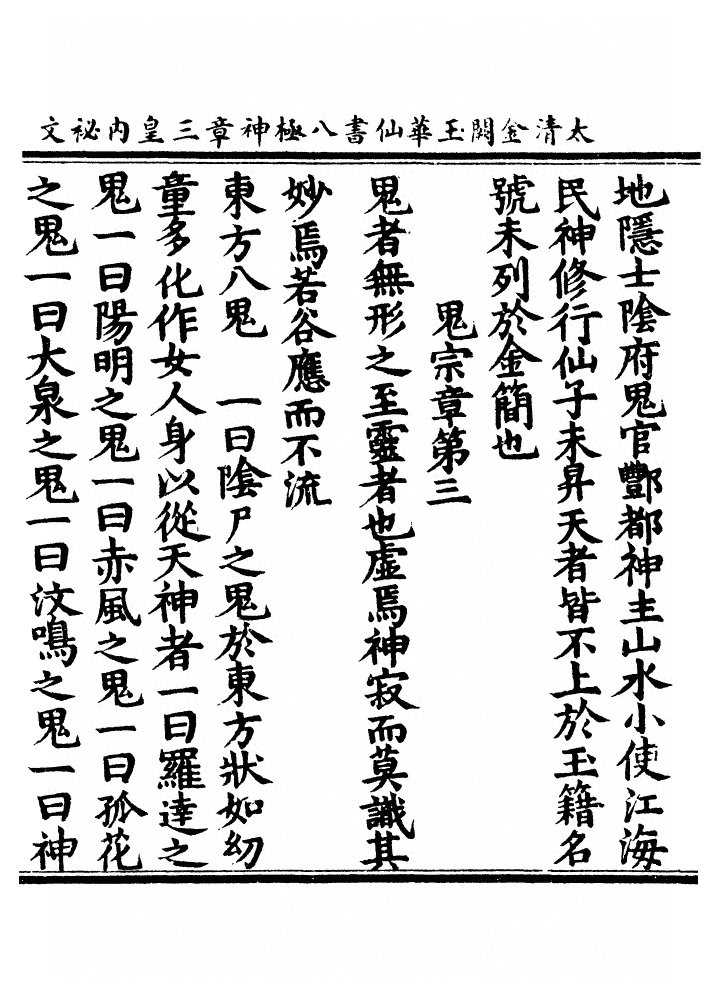 太清金闕玉華仙書八極神章三皇內祕文
地隱士陰府鬼官酆都神主山水小使江海
民神修行仙子未昇天者皆不上於玉籍名
號未列於金簡也
鬼宗章第三
鬼者無形之至靈者也虛焉神寂而莫識其
妙焉若谷應而不流
東方八鬼　一曰陰尸之鬼於東方狀如幼
童多化作女人身以從天神者一曰羅達之
鬼一曰陽明之鬼一曰赤風之鬼一曰孤花
之鬼一曰大泉之鬼一曰汶鳴之鬼一曰神